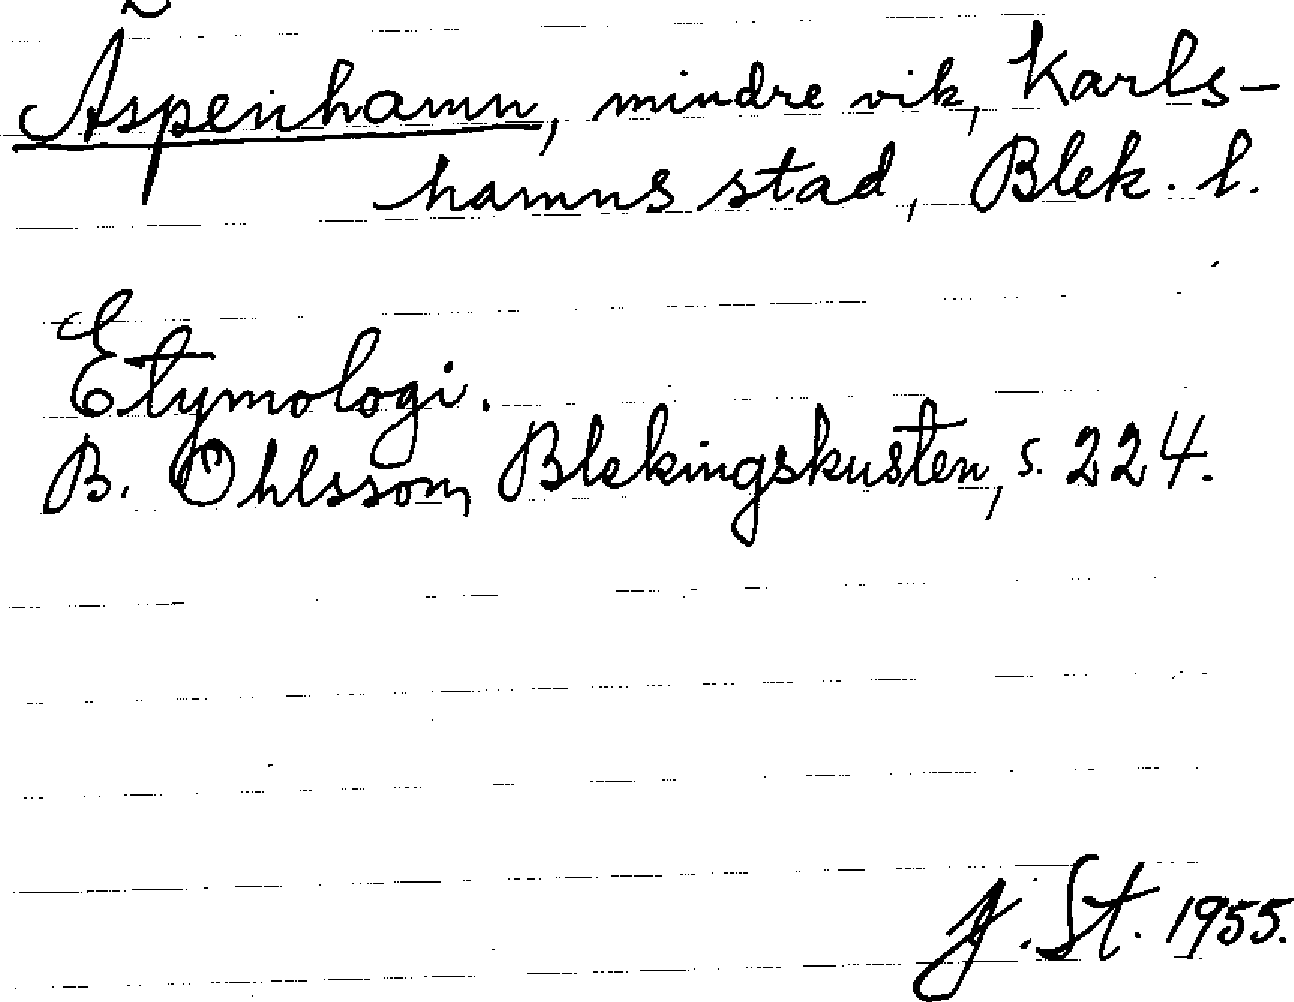 Åspenhamn, mindre vik, Karls-
hamns stad, Blek. l.
Etymologi.
B. Ohlsson, Blekingskusten, s. 224.
J. St. 1955.